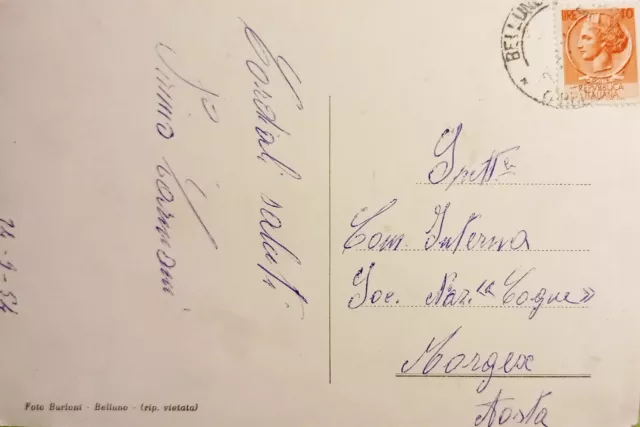 Cordiali saluti
24-9-54
Foto Burloni - Belluno - (rip. vietata)
BELLUNO
LIRE 10
REPUBBLICA
ITALIANA
Spett.le
Com. Interna
Soc. Naz. "Cogne"
Morgex
Aosta